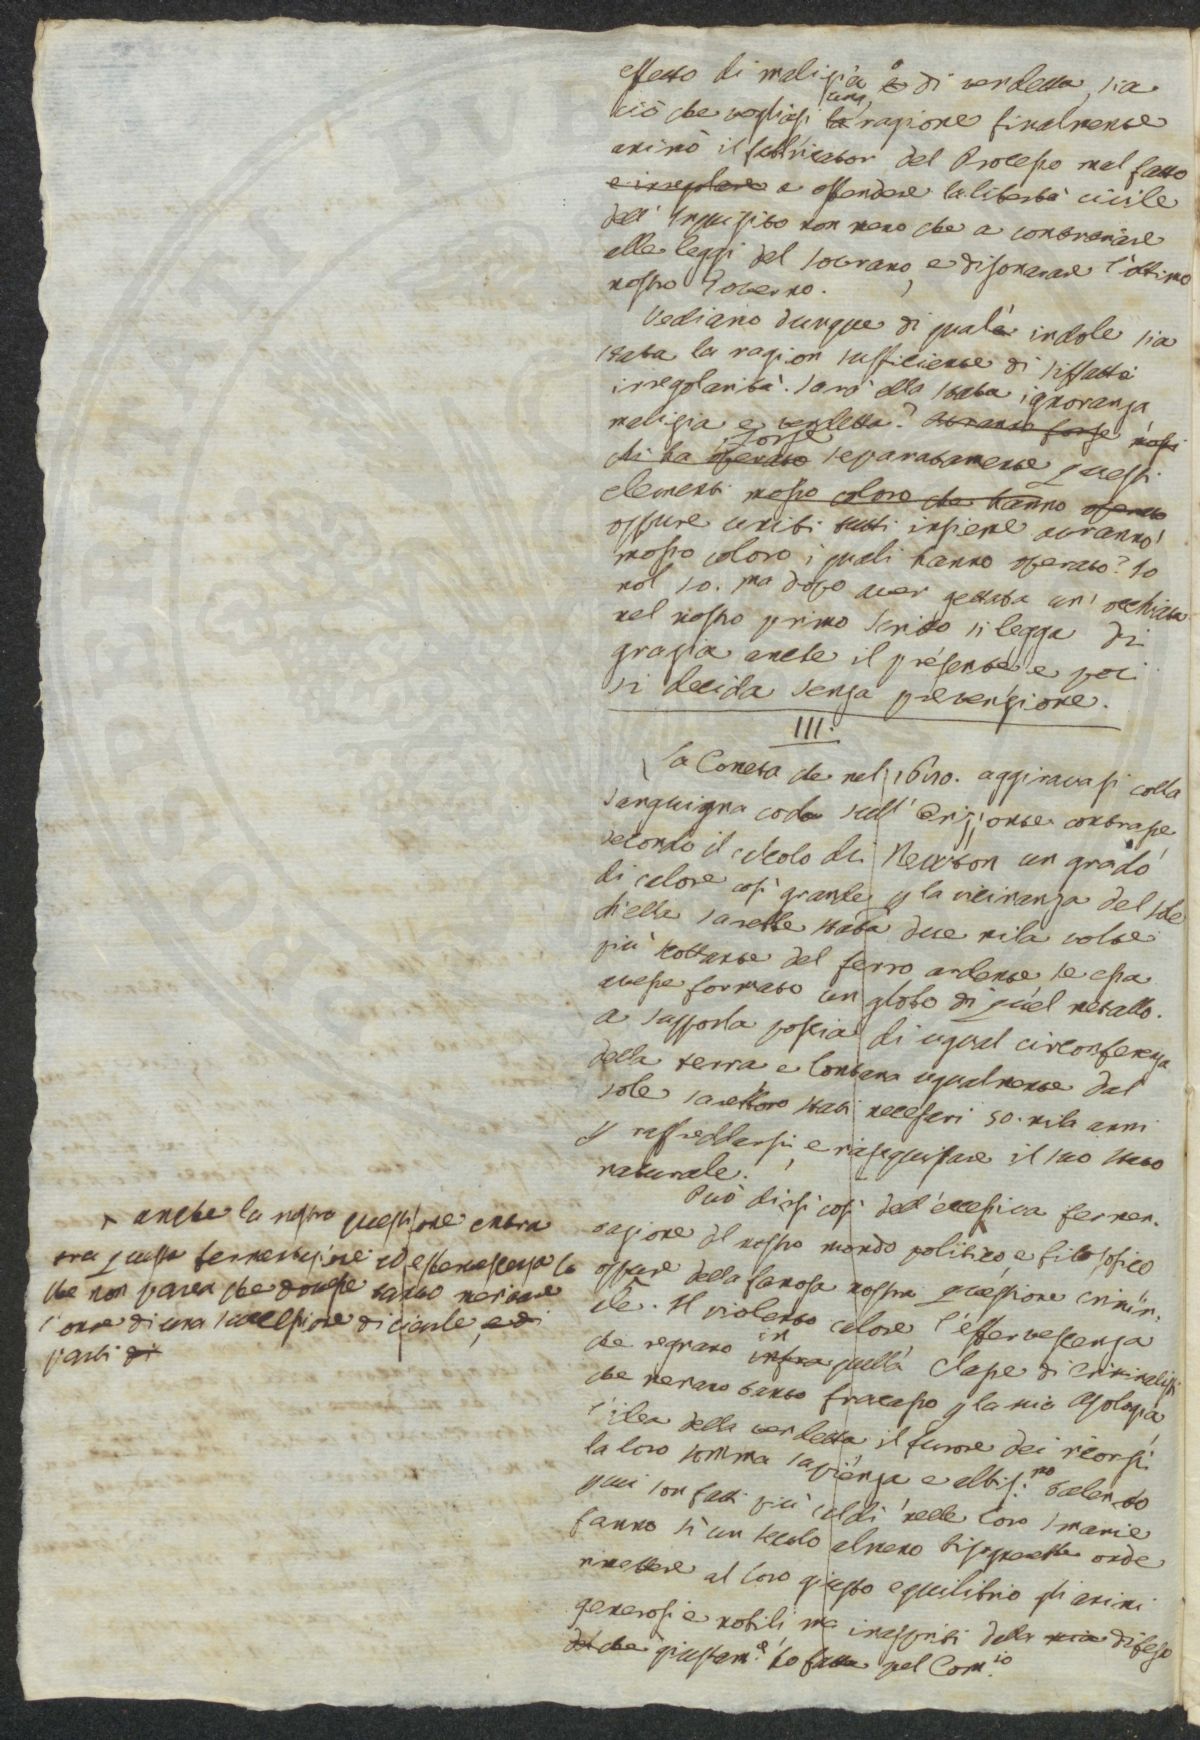 effetto di malizia o di vendetta, sia
ciò che vogliasi una ragione finalmente
animò il fabbricator del Processo mal fatto
e irregolare a offendere la libertà civile
dell' Inquisito non meno che a contravenire
alle leggi del sovrano, e disonorare l'ottimo
nostro Governo.
Vediamo dunque di quale indole sia
stata la ragion sufficiente di siffatta
irregolarità. Sarà ella stata ignoranza
malizia e vendetta? avranno forse mossi
chi ha operato forse separatamente questi
elementi mosso coloro che hanno operato
oppure uniti tutti insieme avranno
mosso coloro i quali hanno operato? Io
nol so. ma dopo aver gettata un' occhiata
nel nostro primo scritto si legga di
grazia anche il presente e poi
si decida senza prevenzione.
III.
La Cometa che nel 1680. aggiravasi colla
sanguigna coda sull' Orizzonte contrasse
secondo il calcolo di Newton un grado
di calore così grande p la vicinanza del sole
ch'ella sarebbe stata due mila volte
più scottante del ferro ardente se essa
avesse formato un globo di quel metallo.
a supporla poscia di ugual circonferenza
della terra e lontana ugualmente dal
sole sarebbero stati necessari 50. mila anni
p raffreddarsi, e riacquistare il suo stato
naturale.
Può dirsi così dell'eccessiva fermen-
tazione del nostro mondo politico, e filosofico
oppure della famosa nostra questione crimin-
ale. Il violento calore l'effervescenza
che regnano infra in quella classe di Criminalisti
che menano tanto fracasso p la mia Apologia
l'idea della vendetta il furore dei ricorsi
la loro somma sapienza e altis.mo talento
qui son fatti più caldi nelle loro smanie
fanno sì un secolo almeno bisognerebbe onde
rimettere al loro giusto equilibrio gli animi
generosi e nobili ma inaspriti della mia difesa
del che giustam.e ho fatta pel Com.io
+ anche la nostra questione entra
ora questa fermentazione ed effervescenza
che non parea che dovesse tanto menare
l'onor di una successione di cicale, e di
parti di